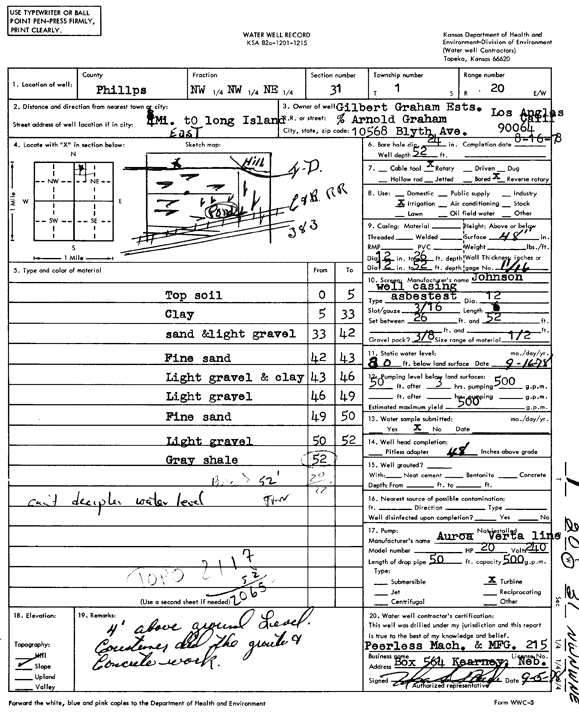 USE TYPEWRITER OR BALL
POINT PEN-PRESS FIRMLY,
PRINT CLEARLY.
WATER WELL RECORD
KSA 82a-1201-1215
Kansas Department of Health and
Environment-Division of Environment
(Water well Contractors)
Topeka, Kansas 66620
1. Location of well: County Phillps Fraction NW 1/4 NW 1/4 NE 1/4 Section number 31 Township number T 1 S Range number R 20 E/W
2. Distance and direction from nearest town or city: 4Mi. to long Island
East
Street address of well location if in city:
3. Owner of well: Gilbert Graham Ests.
R.R. or street: % Arnold Graham Los Anglas
City, state, zip code: 10568 Blyth Ave. Calif. 90064
4. Locate with "X" in section below:
N
NW NE
W E
SW SE
S
1 Mile
1 Mile
Sketch map:
Hill
Pond
RR
383
5. Type and color of material From To
Top soil 0 5
Clay 5 33
sand &light gravel 33 42
Fine sand 42 43
Light gravel & clay 43 46
Light gravel 46 49
Fine sand 49 50
Light gravel 50 52
Gray shale 52
52'
can't decipher water level
TOPO 2117
52
2065
(Use a second sheet if needed)
6. Bore hole dia. 24 in. Completion date 8-16-78
Well depth 52 ft.
7. Cable tool X Rotary Driven Dug
Hollow rod Jetted Bored X Reverse rotary
8. Use: Domestic Public supply Industry
X Irrigation Air conditioning Stock
Lawn Oil field water Other
9. Casing: Material Height: Above or below
Threaded Welded Surface 48" in.
RMP PVC Weight lbs./ft.
Dia. 12 in. to 26 ft. depth Wall Thickness: inches or
Dia. 12 in. to 52 ft. depth gage No. 11/16
10. Screen: Manufacturer's name Johnson
well casing
Type asbestest Dia. 12
Slot/gauze 3/16 Length
Set between 26 ft. and 52 ft.
ft. and ft.
Gravel pack? 3/8 Size range of material 1/2
11. Static water level: mo./day/yr.
ft. below land surface Date 9-16-78
12. Pumping level below land surfaces:
50 ft. after 3 hrs. pumping 500 g.p.m.
ft. after hrs. pumping g.p.m.
Estimated maximum yield 500 g.p.m.
13. Water sample submitted: mo./day/yr.
Yes X No Date
14. Well head completion:
Pitless adapter 48 Inches above grade
15. Well grouted?
With: Neat cement Bentonite Concrete
Depth: From ft. to ft.
16. Nearest source of possible contamination:
ft. Direction Type
Well disinfected upon completion? Yes No
17. Pump: Not installed
Manufacturer's name Auroa Verta line
Model number HP 20 Volts 240
Length of drop pipe 50 ft. capacity 500 g.p.m.
Type:
Submersible X Turbine
Jet Reciprocating
Centrifugal Other
18. Elevation:
Topography:
Hill
Slope
Upland
Valley
19. Remarks:
4' above ground level.
Customer did the grout &
Concrete work.
20. Water well contractor's certification:
This well was drilled under my jurisdiction and this report
is true to the best of my knowledge and belief.
Peerless Mach. & MFG. 215
Business name
Address Box 564 Kearney, Neb.
Signed Date 9-5-78
Authorized representative
Forward the white, blue and pink copies to the Department of Health and Environment
Form WWC-5